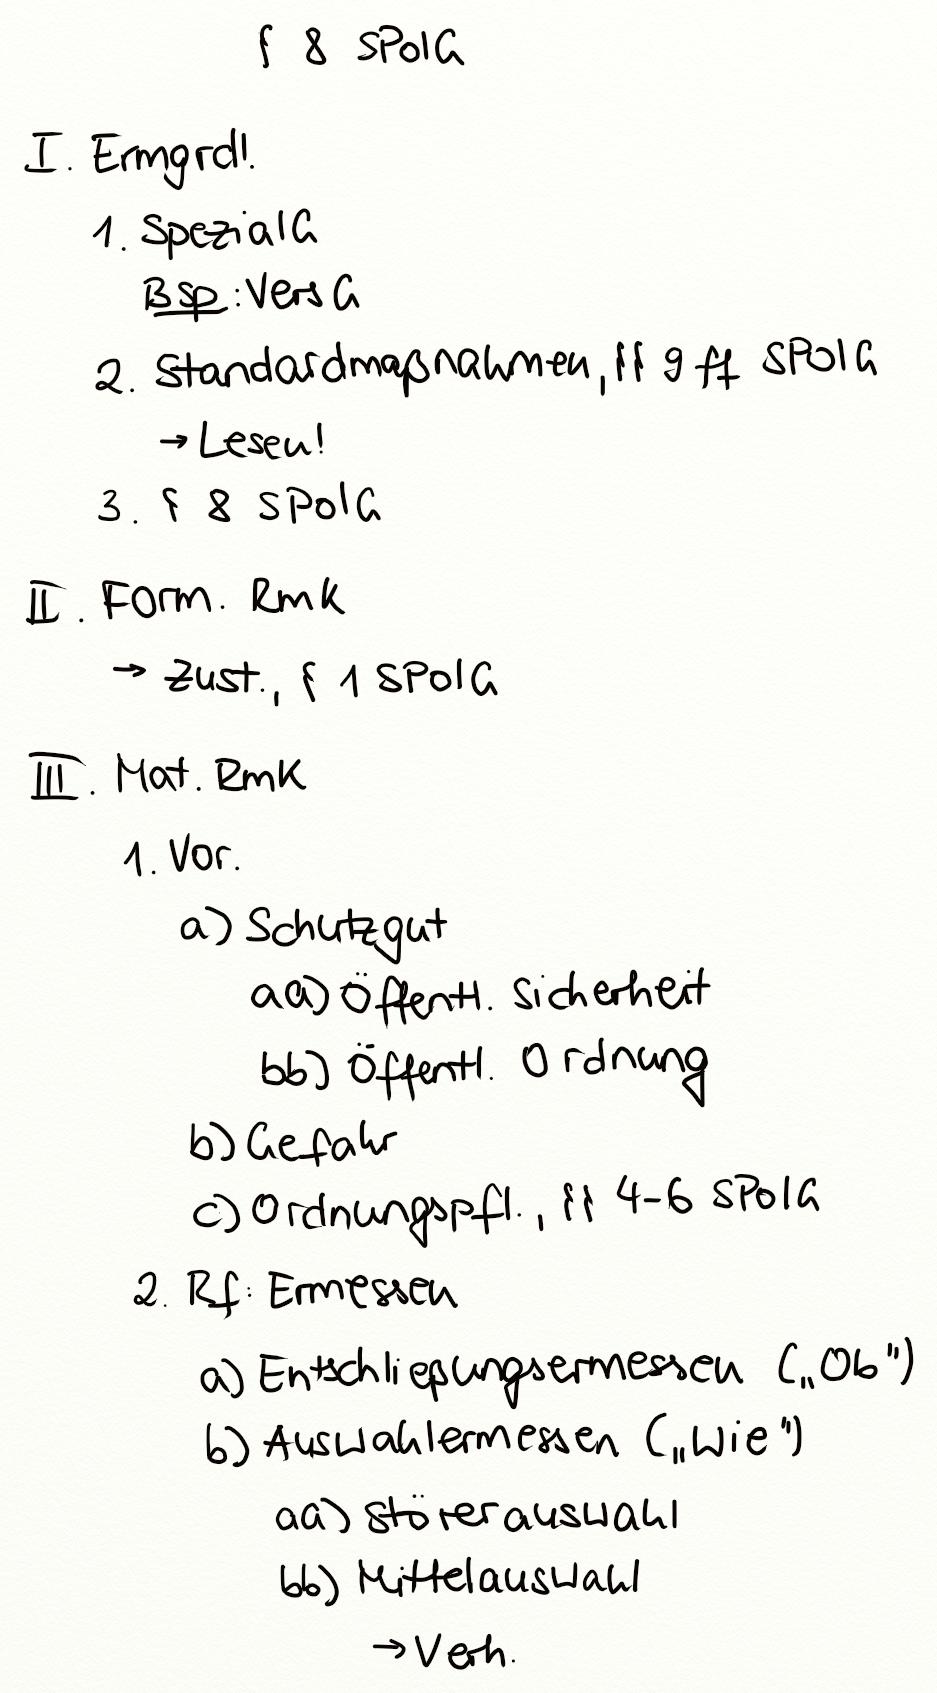 § 8 SPolG
I. Ermgrdl.
1. SpezialG
Bsp.: VersG
2. Standardmaßnahmen, §§ 9 ff SPolG
→ Lesen!
3. § 8 SPolG
II. Form. RmK
→ Zust., § 1 SPolG
III. Mat. RmK
1. Vor.
a) Schutzgut
aa) Öffentl. Sicherheit
bb) Öffentl. Ordnung
b) Gefahr
c) Ordnungspfl., §§ 4-6 SPolG
2. Rf: Ermessen
a) Entschließungsermessen („Ob")
b) Auswahlermessen („Wie")
aa) Störerauswahl
bb) Mittelauswahl
→ Verh.